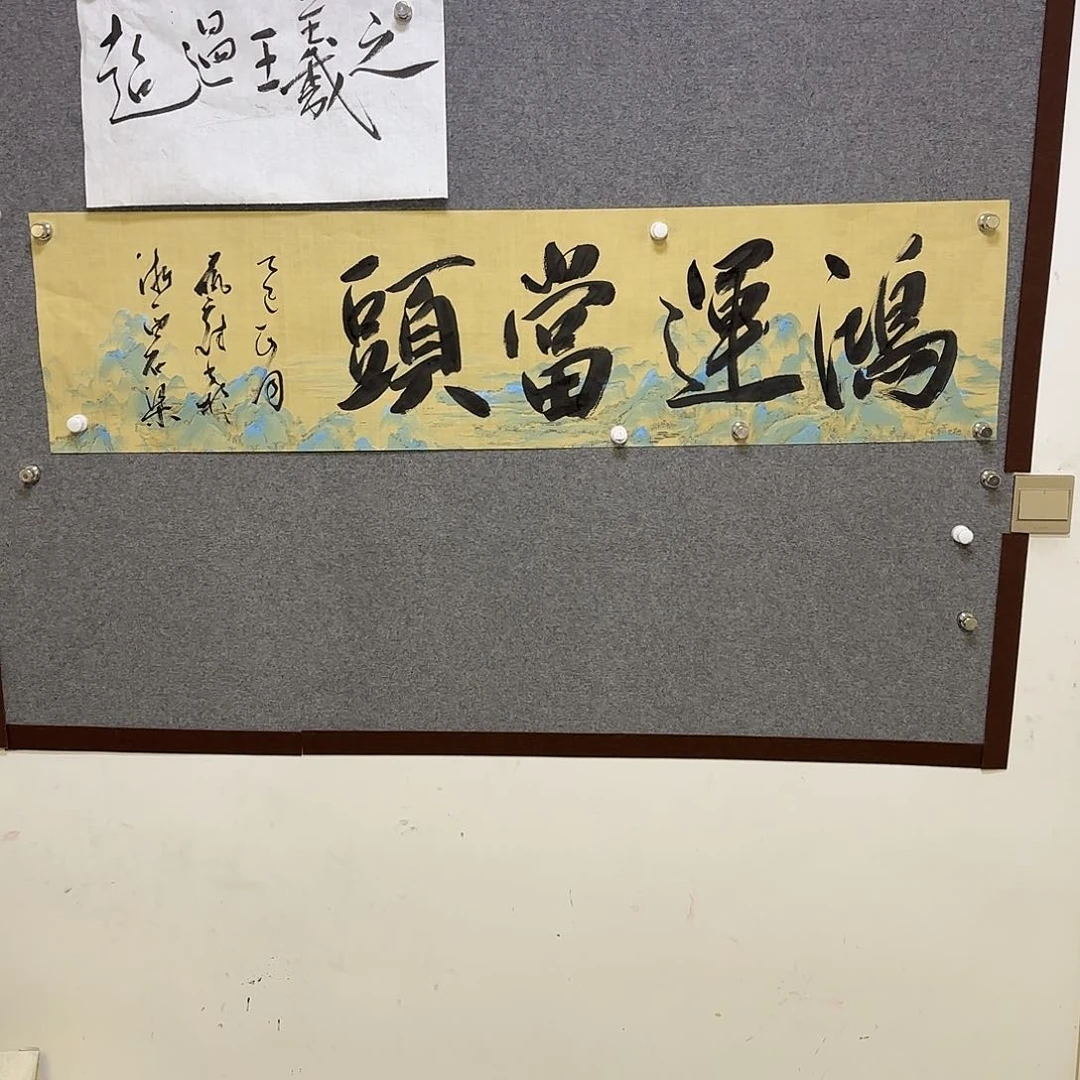 超過王羲之
鴻運當頭
乙巳正月